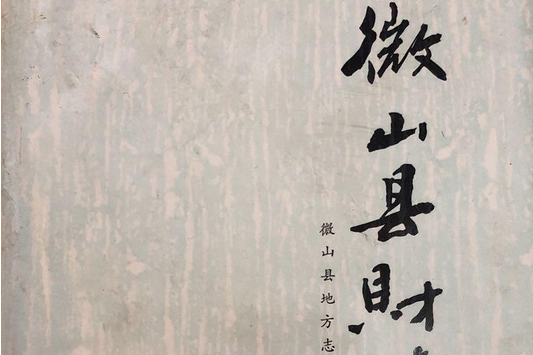 微山县财
微山县地方志